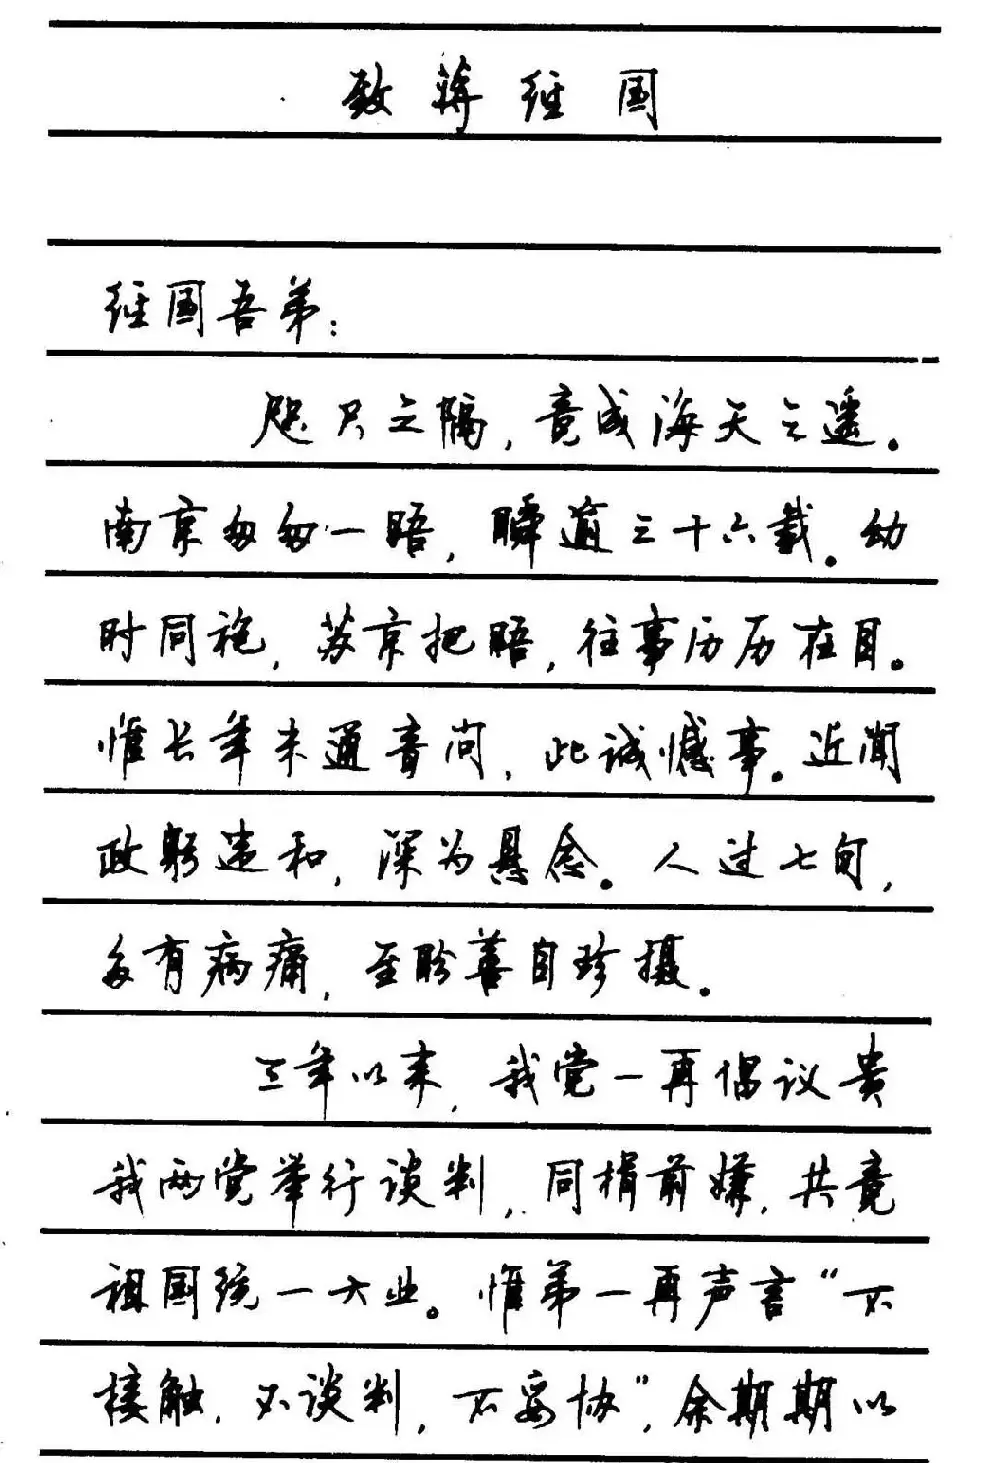 致蒋经国
经国吾弟：
咫尺之隔，竟成海天之遥。
南京匆匆一晤，瞬逾三十六载。幼
时同袍，苏京把晤，往事历历在目。
惟长年未通音问，此诚憾事。近闻
政躬违和，深为悬念。人过七旬，
多有病痛，至盼善自珍摄。
三年以来，我党一再倡议贵
我两党举行谈判，同捐前嫌，共竟
祖国统一大业。惟弟一再声言“不
接触，不谈判，不妥协”，余期期以